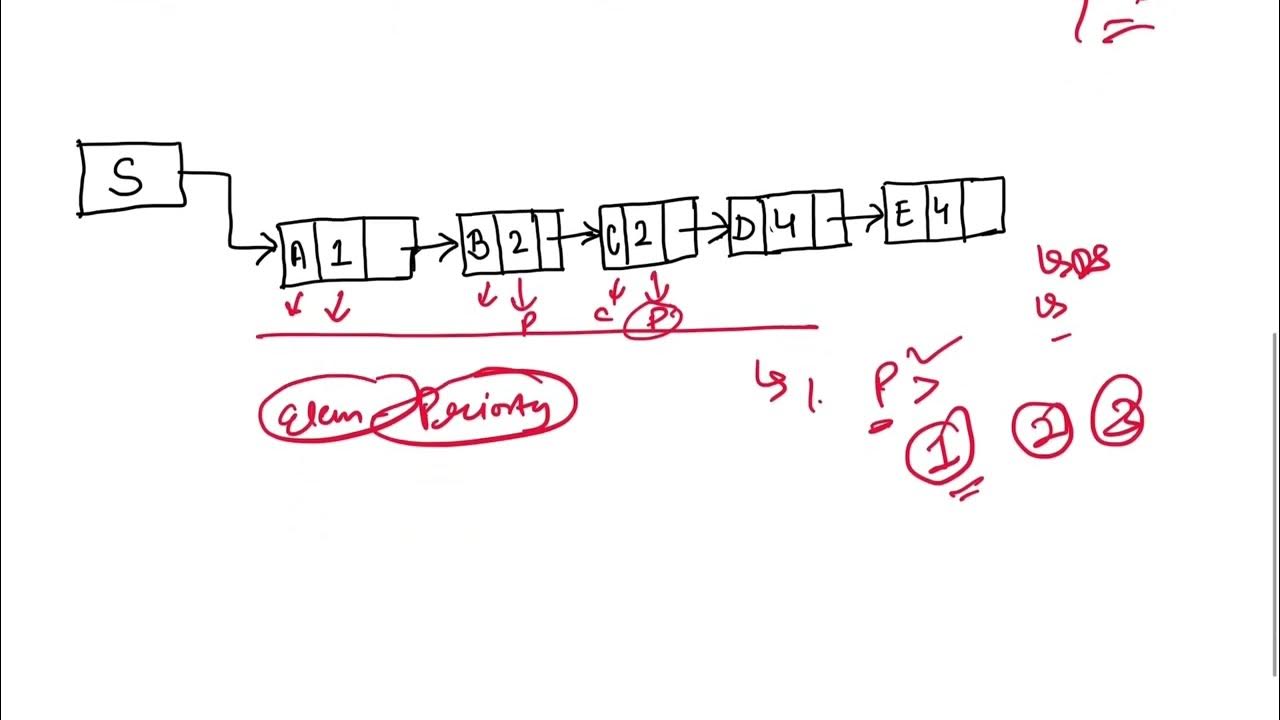 S
A 1
B 2
C 2
D 4
E 4
↳ DS
P
C P
↳ 1. P >
Elem - Priority
1 2 3